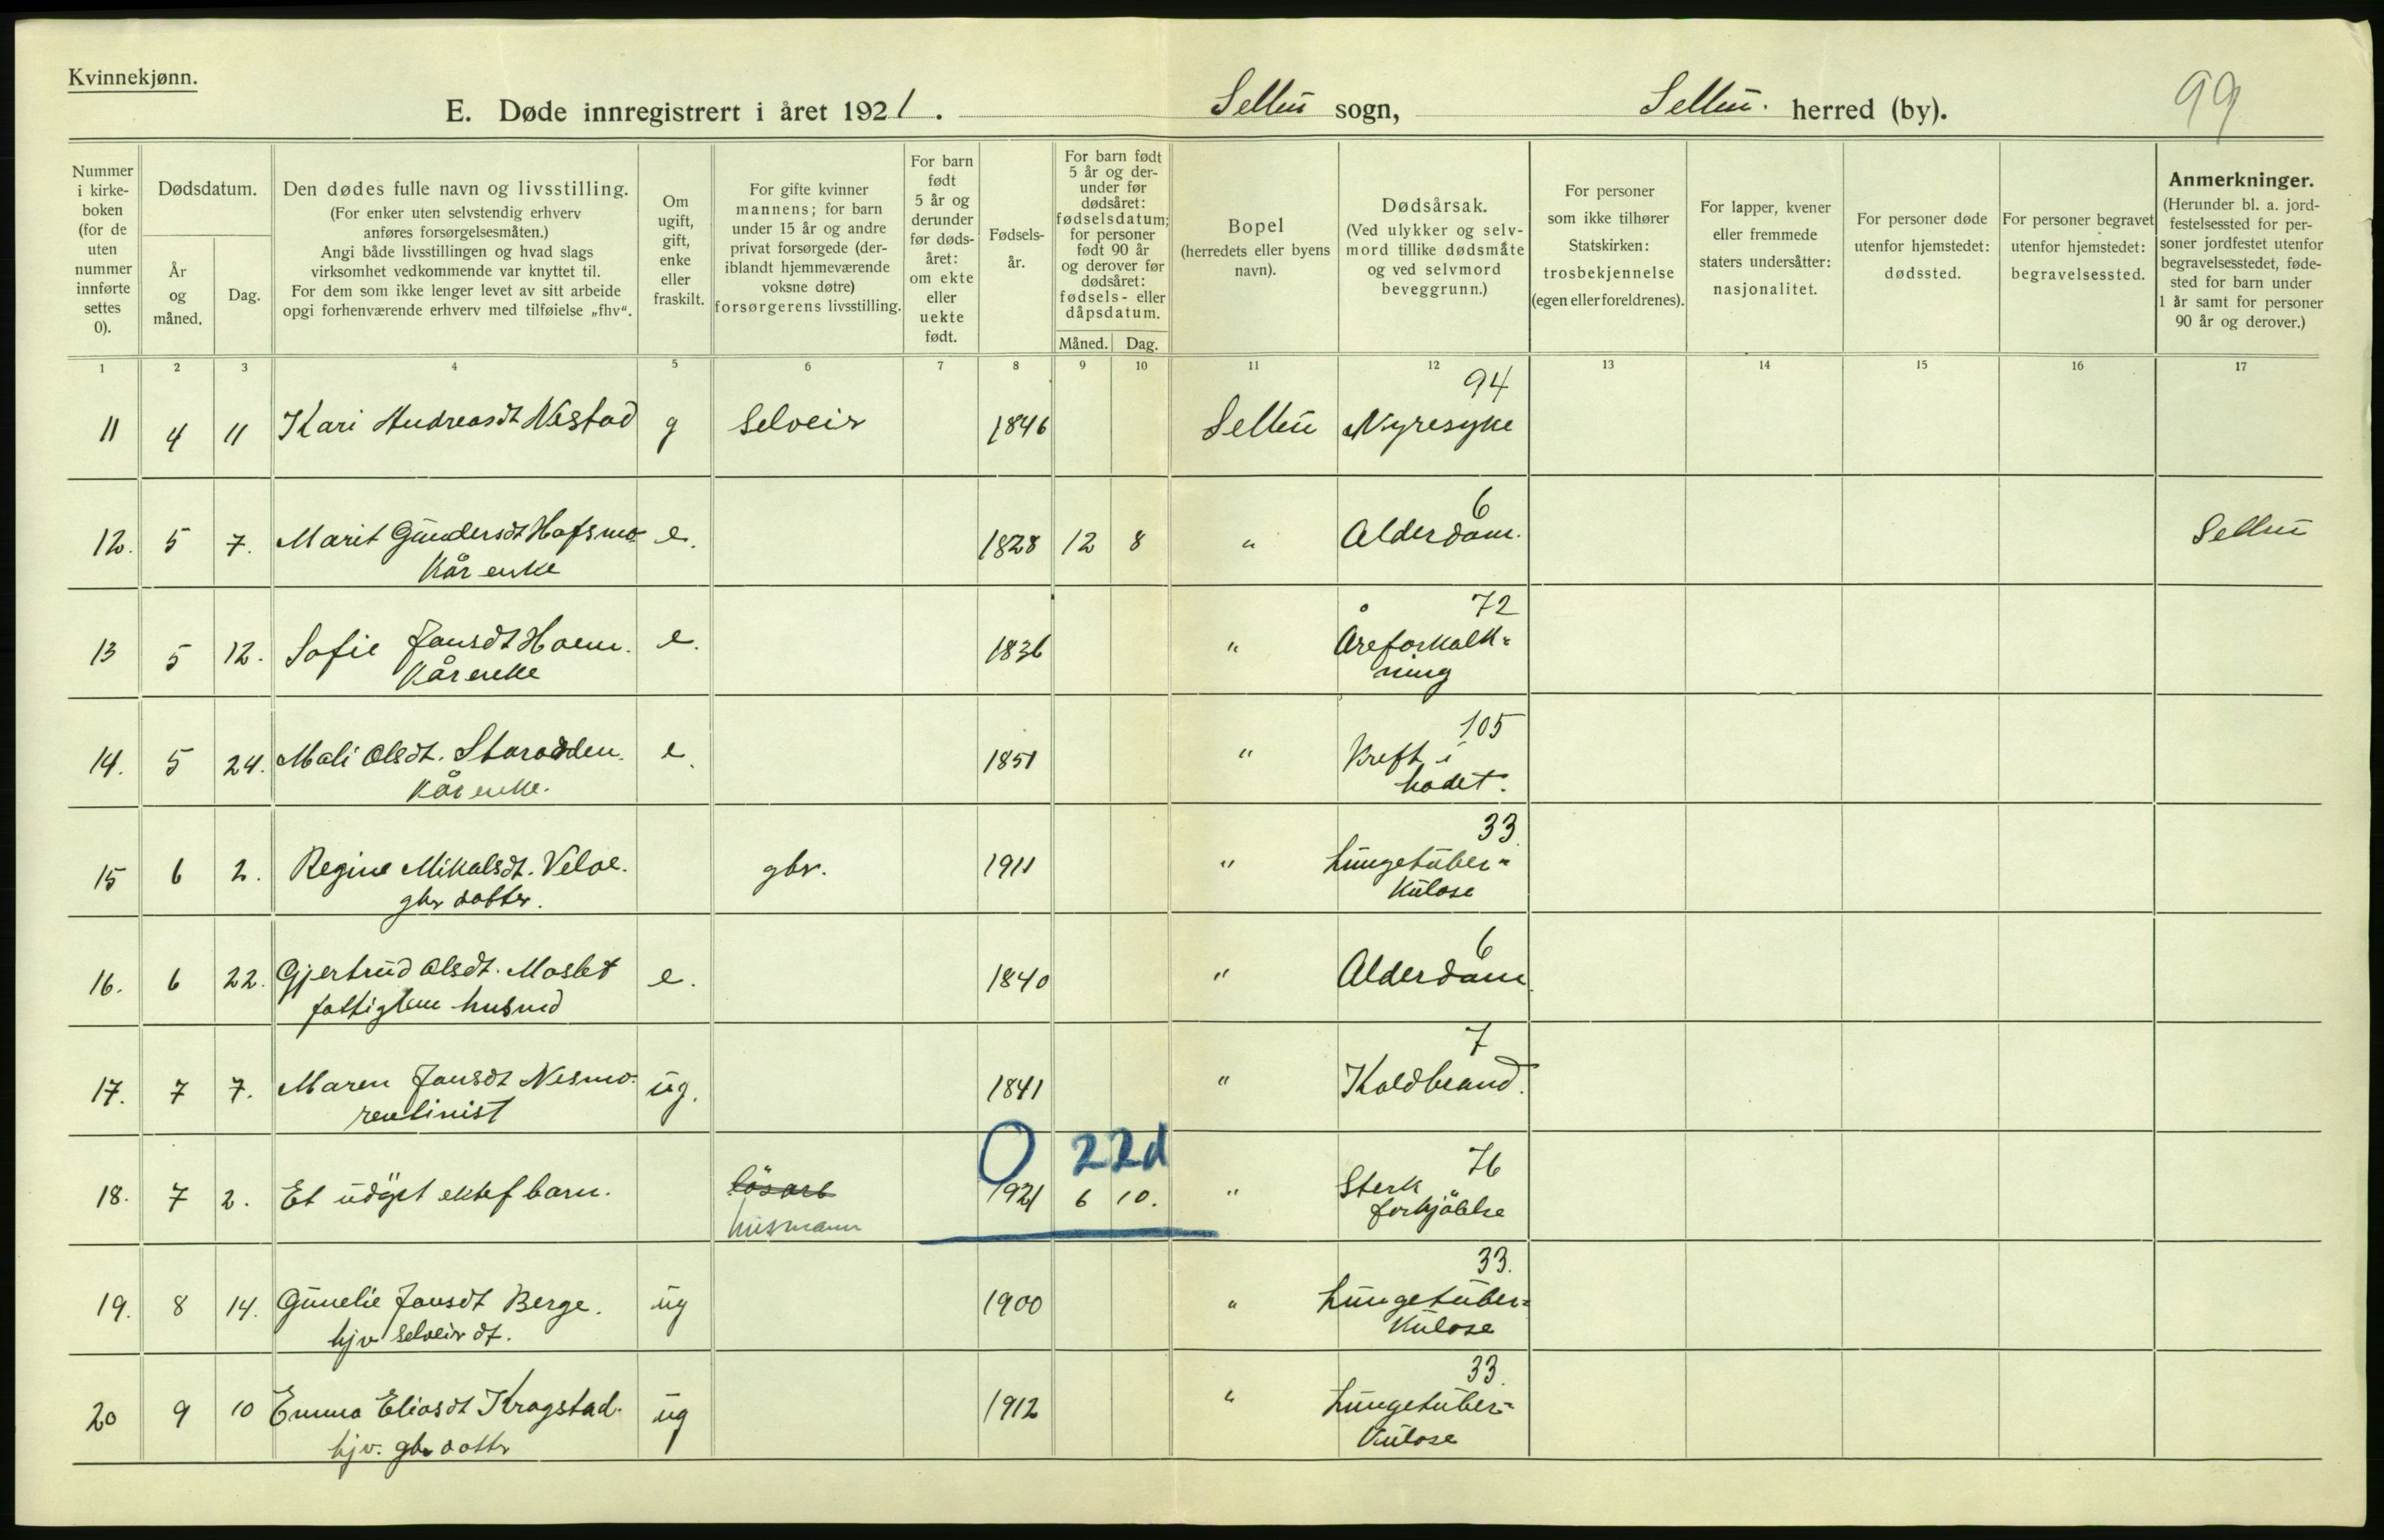 Kvinnekjønn.
E. Døde innregistrert i året 1921. Selbu sogn, Selbu. herred (by). 99
Nummer i kirke-boken (for de uten nummer innførte settes 0).
Dødsdatum.
År og måned.
Dag.
Den dødes fulle navn og livsstilling.
(For enker uten selvstendig erhverv
anføres forsørgelsesmåten.)
Angi både livsstillingen og hvad slags
virksomhet vedkommende var knyttet til.
For dem som ikke lenger levet av sitt arbeide
opgi forhenværende erhverv med tilføielse „fhv“.
Om ugift, gift, enke eller fraskilt.
For gifte kvinner
mannens; for barn
under 15 år og andre
privat forsørgede (der-
iblandt hjemmeværende
voksne døtre)
forsørgerens livsstilling.
For barn født 5 år og derunder før døds-året: om ekte eller uekte født.
Fødsels-år.
For barn født
5 år og der-
under før
dødsåret:
fødselsdatum;
for personer
født 90 år
og derover før
dødsåret:
fødsels- eller
dåpsdatum.
Måned. Dag.
Bopel
(herredets eller byens
navn).
Dødsårsak.
(Ved ulykker og selv-
mord tillike dødsmåte
og ved selvmord
beveggrunn.)
For personer
som ikke tilhører
Statskirken:
trosbekjennelse
(egen eller foreldrenes).
For lapper, kvener
eller fremmede
staters undersåtter:
nasjonalitet.
For personer døde
utenfor hjemstedet:
dødssted.
For personer begravet
utenfor hjemstedet:
begravelsessted.
Anmerkninger.
(Herunder bl. a. jord-
festelsessted for per-
soner jordfestet utenfor
begravelsesstedet, føde-
sted for barn under
1 år samt for personer
90 år og derover.)
1 2 3 4 5 6 7 8 9 10 11 12 13 14 15 16 17
94
11 4 11 Kari Andreasdt Nestad g Selveir 1846 Selbu Nyresyke
6
12. 5 7. Marit Gundersdt Hofsmo e. 1828 12 8 " Alderdom. Selbu
Kårenke
72
13 5 12. Sofie Jonsdt Hoem. e. 1836 " Åreforkalk=
Kårenke ning
105
14. 5 24. Mali Olsdt. Storodden. e. 1851 " Kreft i
Kårenke. hodet.
33
15 6 2. Regine Mikalsdt. Velve. gbr. 1911 " Lungetuber=
gbr datter. kulose
6
16. 6 22. Gjertrud Olsdt. Moslet e. 1840 " Alderdom
fattiglem husmd
7
17. 7 7. Maren Jonsdt Nesmo. ug. 1841 " Koldbrand.
rentinist
0 22d 76
18. 7 2. Et udöpt ektef barn. lösarb 1921 6 10. " Sterk
husmann forkjölelse
33.
19. 8 14. Gunelie Jonsdt Berge. ug 1900 " Lungetuber=
hjv selveir dt. kulose
33.
20 9 10 Emma Eliasdt Kragstad. ug 1912 " Lungetuber=
hjv. gbr datter kulose